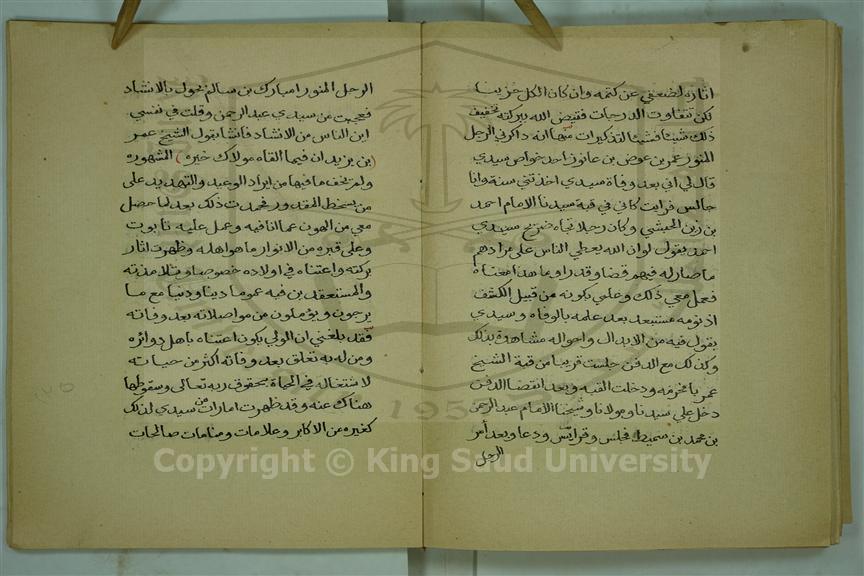 اثاره لضعفي عن كتمه وان كان الكل حزينا
لكن تتفاوت الدرجات فقيض الله ببركته تخفيف
ذلك شيئا فشيئا لتذكيرات منها انه ذاكرني الرجل
المنور عمر بن عوض بن عانوز احد خواص سيدي
قال لي اني بعد وفاة سيدي اخذتني سنة وانا
جالس فرايت كاني في قبة سيدنا الامام احمد
بن زين الحبشي وكان رجلا تجاه ضريح سيدي
احمد يقول لو ان الله يعطي الناس على مرادهم
ما صار له فيهم قضا وقدر او ما هذا معناه
فعمل معي ذلك وعلمي بكونه من قبيل الكشف
اذ نومه مستبعد بعد علمه بالوفاه وسيدي
يقول فيه من الابدال واحواله مشاهدة بذلك
وكذلك مع الدفن جلست قريبا من قبة الشيخ
عمر بامخرمه ودخلت القبه وبعد انقضا الدفن
دخل علي سيدنا ومولانا وشيخنا الامام عبد الرحمن
بن محمد بن سميط فجلس وقرا يس ودعا وبعد أمر
الرجل
الرجل المنور امبارك بن سالم بحول بالانشاد
فعجبت من سيدي عبد الرحمن وقلت في نفسي
اين الناس من الانشاد فانشا بقول الشيخ عمر
(بن يزيد ان فيما القاه مولاك خيره) الشهوره
ولم يخف ما فيها من ايراد الوعيد والتهديد على
من يسخط المقدور فحمدت ذلك بعد لما حصل
معي من الهون عما النافيه وعمل عليه تابوت
وعلى قبره من الانوار ما هو اهله وظهرت اثار
بركته واعتناه في اولاده خصوصا وتلامذته
والمستعقدين فيه عموما دينا ودنيا مع ما
يرجون ويؤملون من مواصلاته بعد وفاته
فقد بلغني ان الولي يكون اعتناه باهل دوائره
ومن له به تعلق بعد وفاته اكثر من حياته
لاشتغاله في الحياة بحقوق ربه تعالى وسقوطها
هناك عنه وقد ظهرت امارات من سيدي لذلك
كغيره من الاكابر وعلامات ومنامات صالحات
Copyright © King Saud University
1957